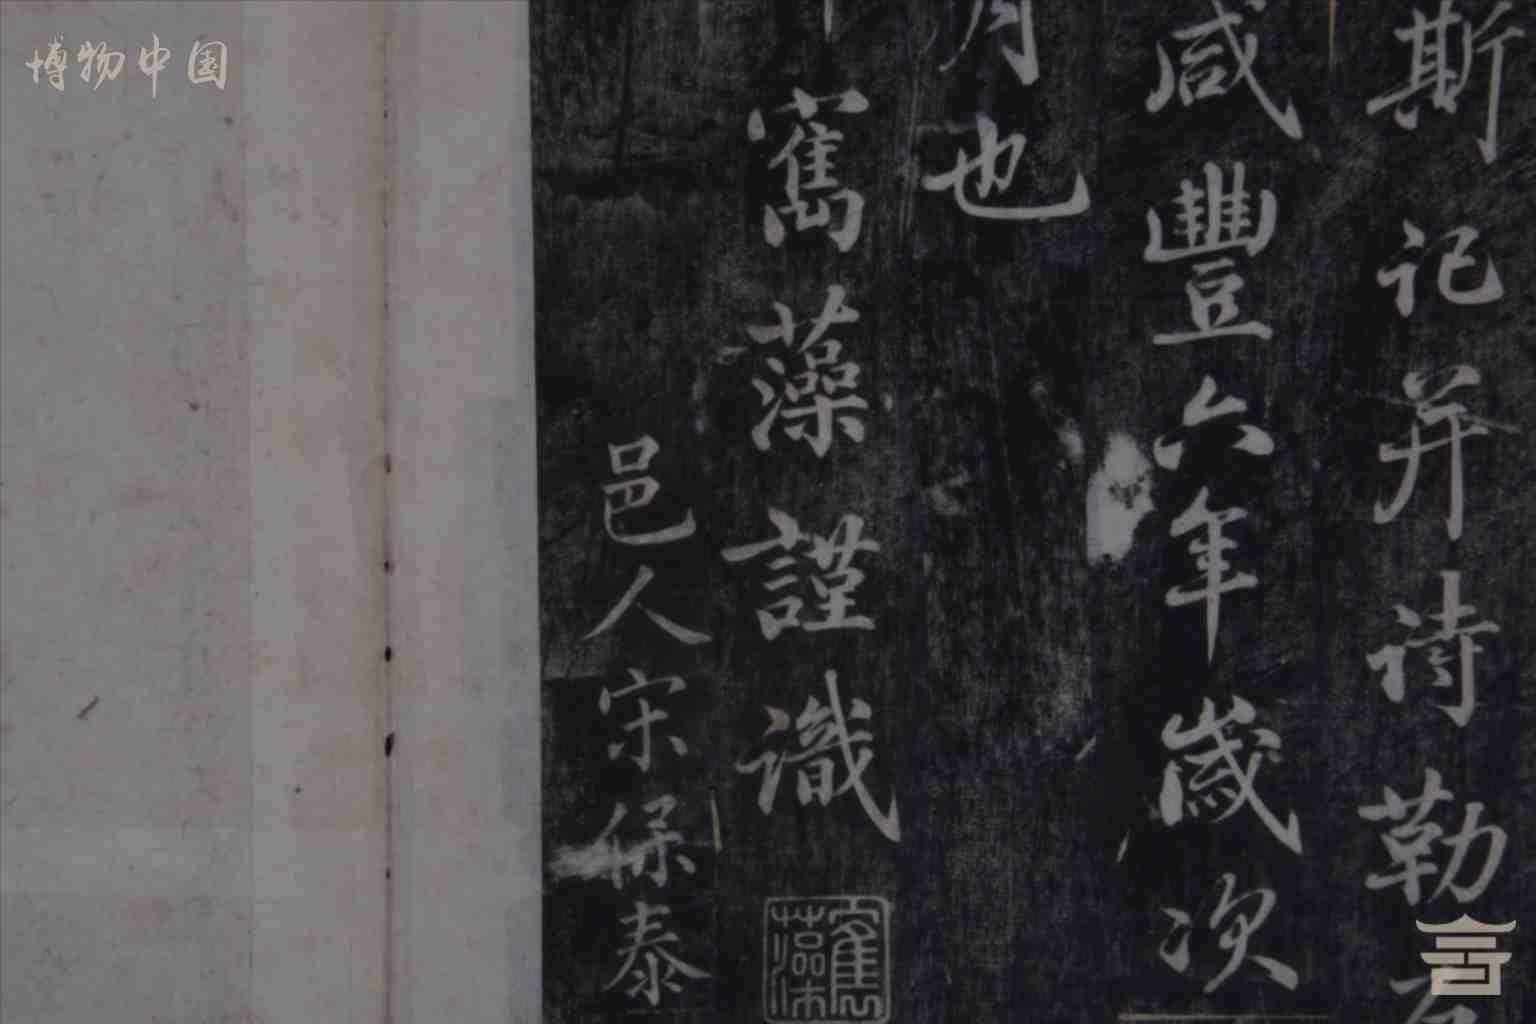 博物中国
斯记并诗勒
咸豐六年歲次
月也
寯藻謹識
寯藻
邑人宋保泰